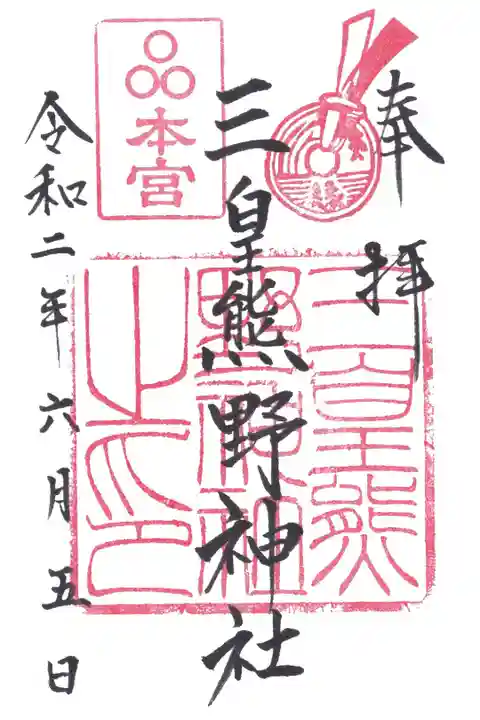 奉拝
三皇熊野神社
本宮
三皇熊
野神社
之印
令和二年六月五日